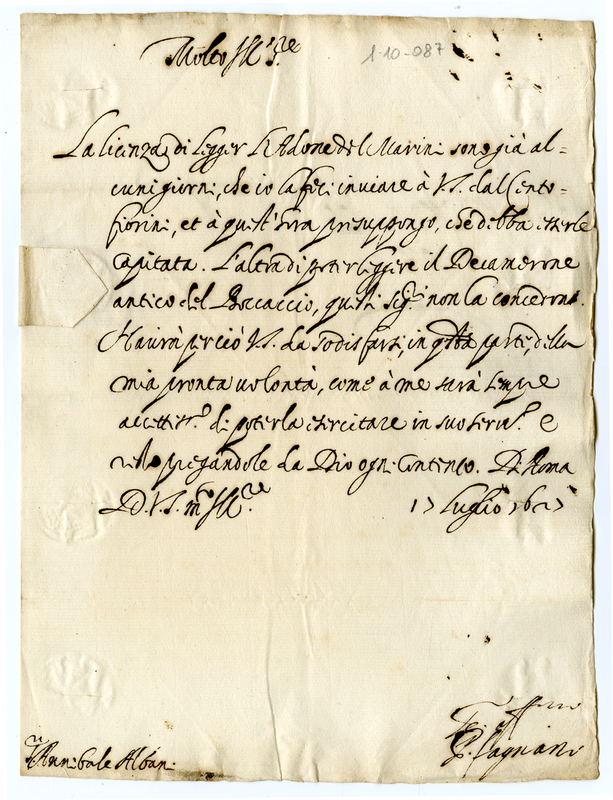 Molto Ill.re
1-10-087
La licenza di legger l'Adone del Marini sono già al=
cuni giorni, che io la feci inviare à V.S. dal Cento=
fiorini, et à quest'hora presuppongo, che debba esserle
capitata. L'altra di poter leggere il Decamerone
antico del Boccaccio, questi Sig.ri non la concedono.
Haurà perciò V.S. da sodisfarsi, in q.sta parte, della
mia pronta uolontà, come à me sarà sempre
accettiss.o di poterla esercitare in suo seru.o e
resto pregandole da Dio ogni contento. Di Roma
D. V.S. m.to Ill.re
17 Luglio 1627
Annibale Albani